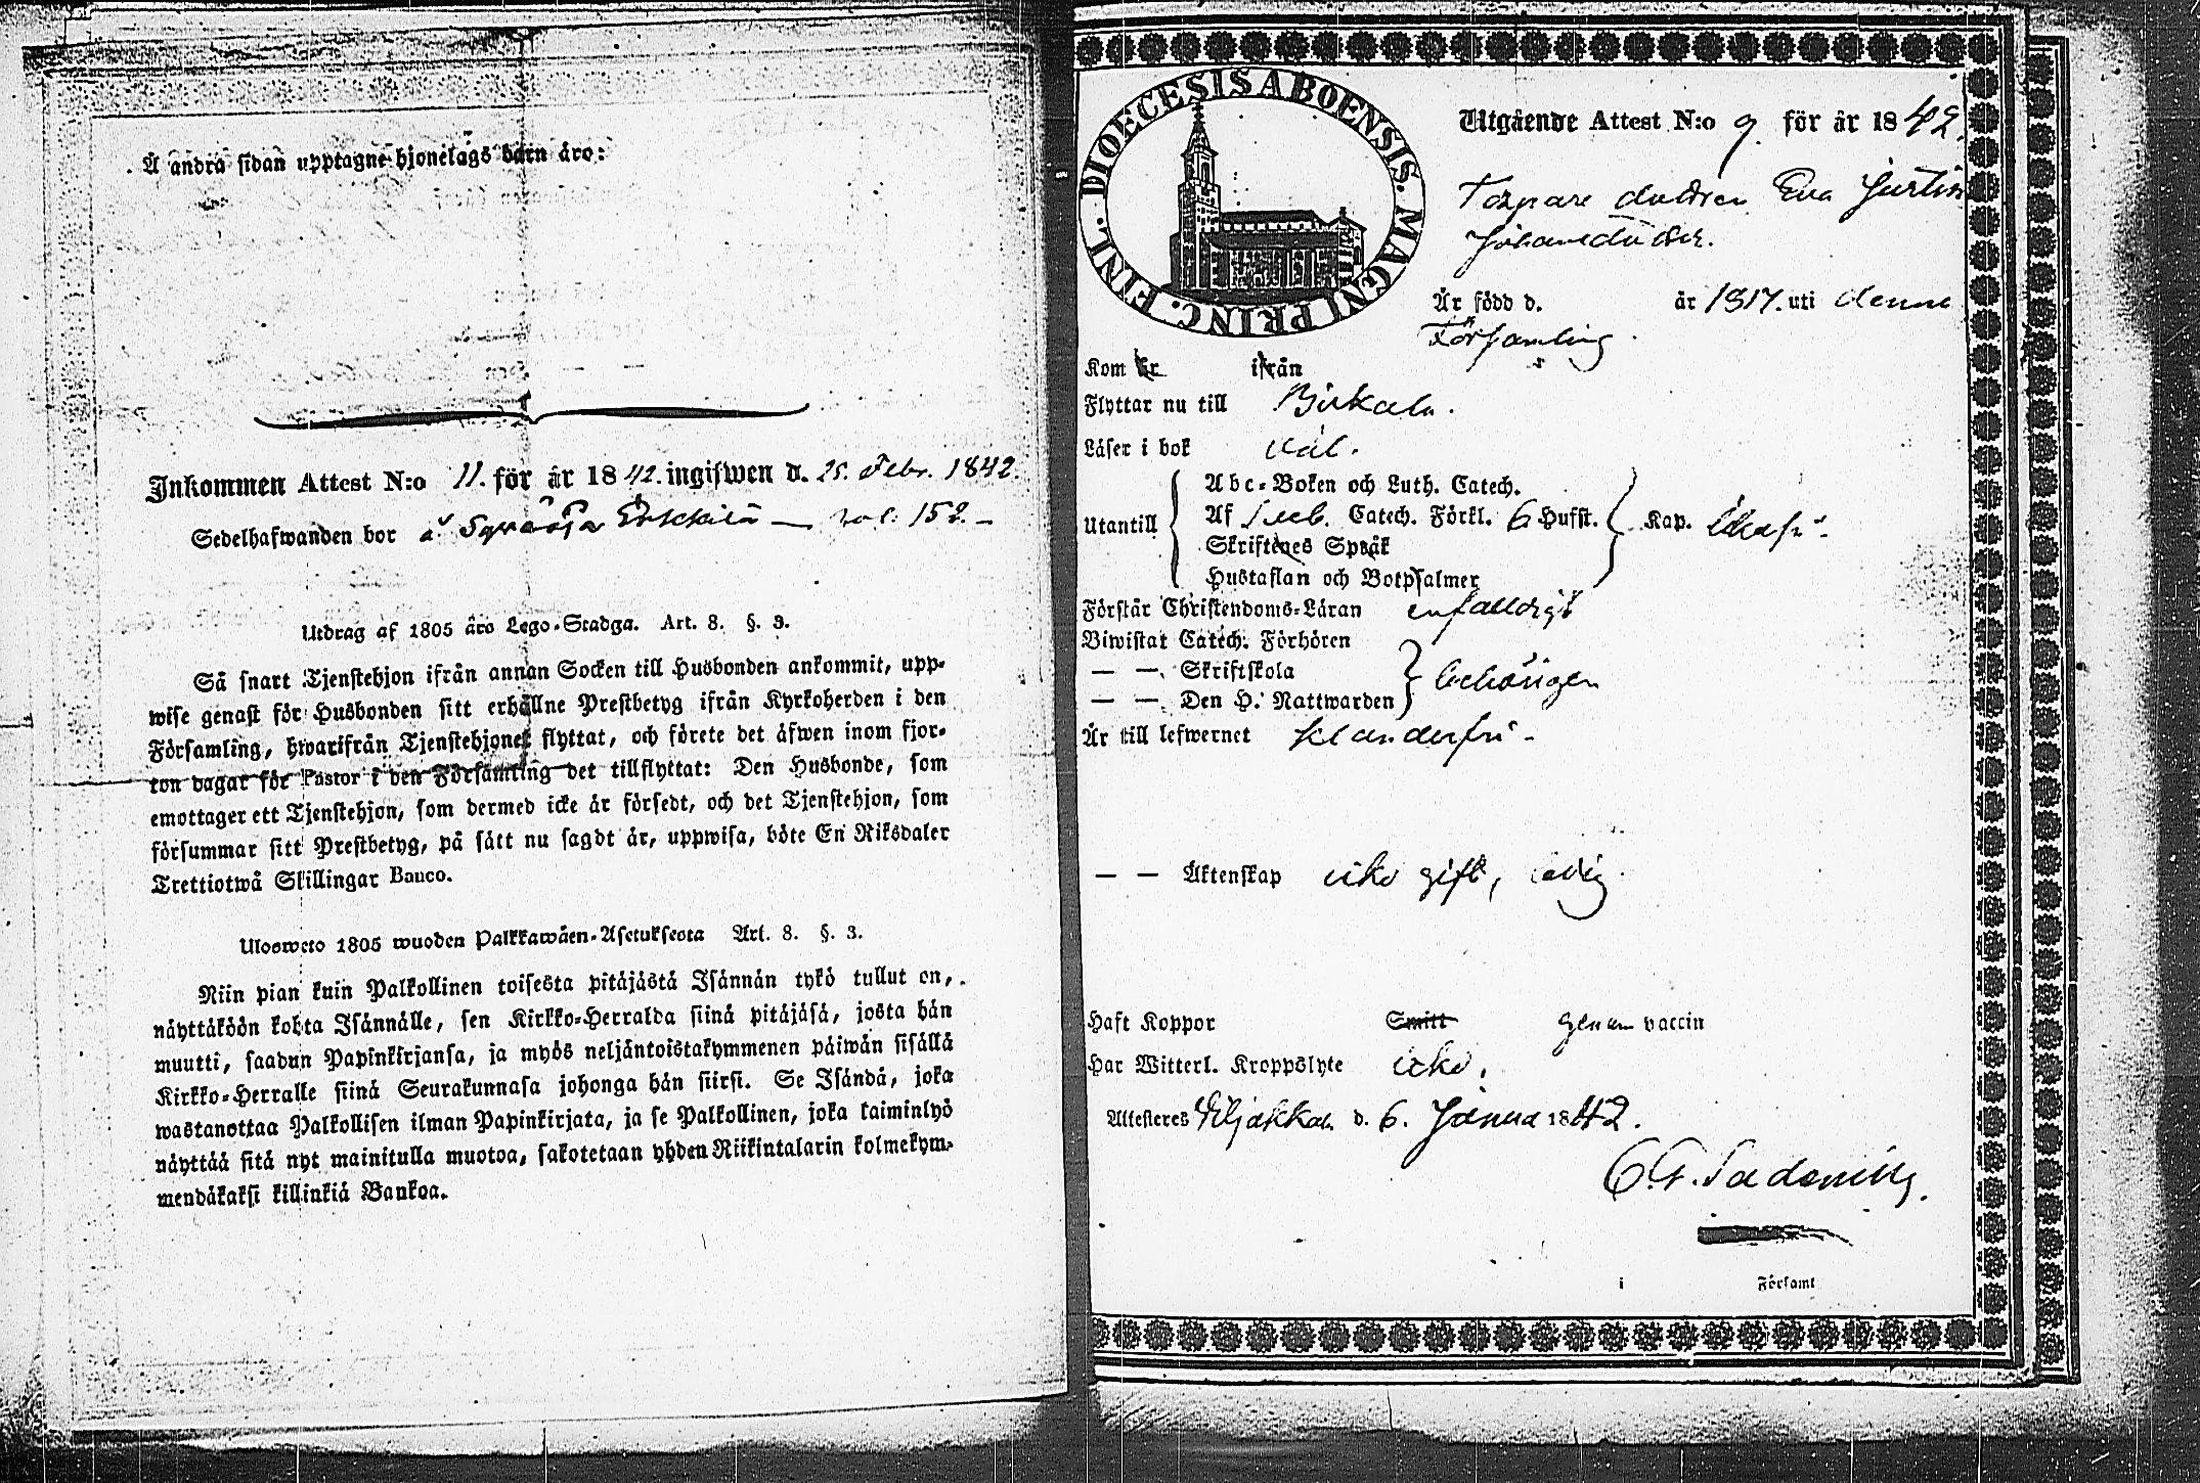 Å andra sidan upptagne hjonelags barn äro:
Inkommen Attest N:o 11. för år 1842. ingifwen d. 25. Febr. 1842.
Sedelhafwanden bor å Erkkilä — 152. –
Utdrag af 1805 års Lego-Stadga. Art. 8. §. 3.
Så snart Tjenstehjon ifrån annan Socken till Husbonden ankommit, upp-
wise genast för Husbonden sitt erhållne Prestbetyg ifrån Kyrkoherden i den
Församling, hwarifrån Tjenstehjonet flyttat, och förete det äfwen inom fjor-
ton dagar för Pastor i den Församling det tillflyttat: Den Husbonde, som
emottager ett Tjenstehjon, som dermed icke är försedt, och det Tjenstehjon, som
försummar sitt Prestbetyg, på sätt nu sagdt är, uppwisa, böte En Riksdaler
Trettiotwå Skillingar Banco.
Ulosweto 1805 wuoden Palkkawäen-Asetuksesta Art. 8. §. 3.
Niin pian kuin Palkollinen toisesta pitäjästä Isännän tykö tullut on,
näyttäköön kohta Isännälle, sen Kirkko-Herralda siinä pitäjäsä, josta hän
muutti, saadun Papinkirjansa, ja myös neljäntoistakymmenen päiwän sisällä
Kirkko-Herralle siinä Seurakunnasa johonga hän siirsi. Se Isändä, joka
wastanottaa Palkollisen ilman Papinkirjata, ja se Palkollinen, joka taiminlyö
näyttää sitä nyt mainitulla muotoa, sakotetaan yhden Riikintalarin kolmekym-
mendäkaksi killinkiä Bankoa.
DIOECESIS ABOENSIS. MAGNI PRINC. FINL.
Utgående Attest N:o 9. för år 1842.
Torpare dottren Eva Justin
Johansdotter.
Är född d. år 1817. uti denna
Församling.
Kom år ifrån
Flyttar nu till Birkala.
Läser i bok väl.
Utantill
Abc-Boken och Luth. Catech.
Af Sveb. Catech. Förkl. 6 Hufst. Kap.
Skriftenes Språk
Hustaflan och Botpsalmer
Förstår Christendoms-Läran enfalldigt
Biwistat Catech. Förhören
— — Skriftskola
— — Den H. Nattwarden behörigen
Är till lefwernet klanderfri -
— — Äktenskap icke gift, ledig
Haft Koppor Smitt genom vaccin
Har Witterl. Kroppslyte icke.
Attesteres Viljakkala d. 6. Janua 1842.
i Församl